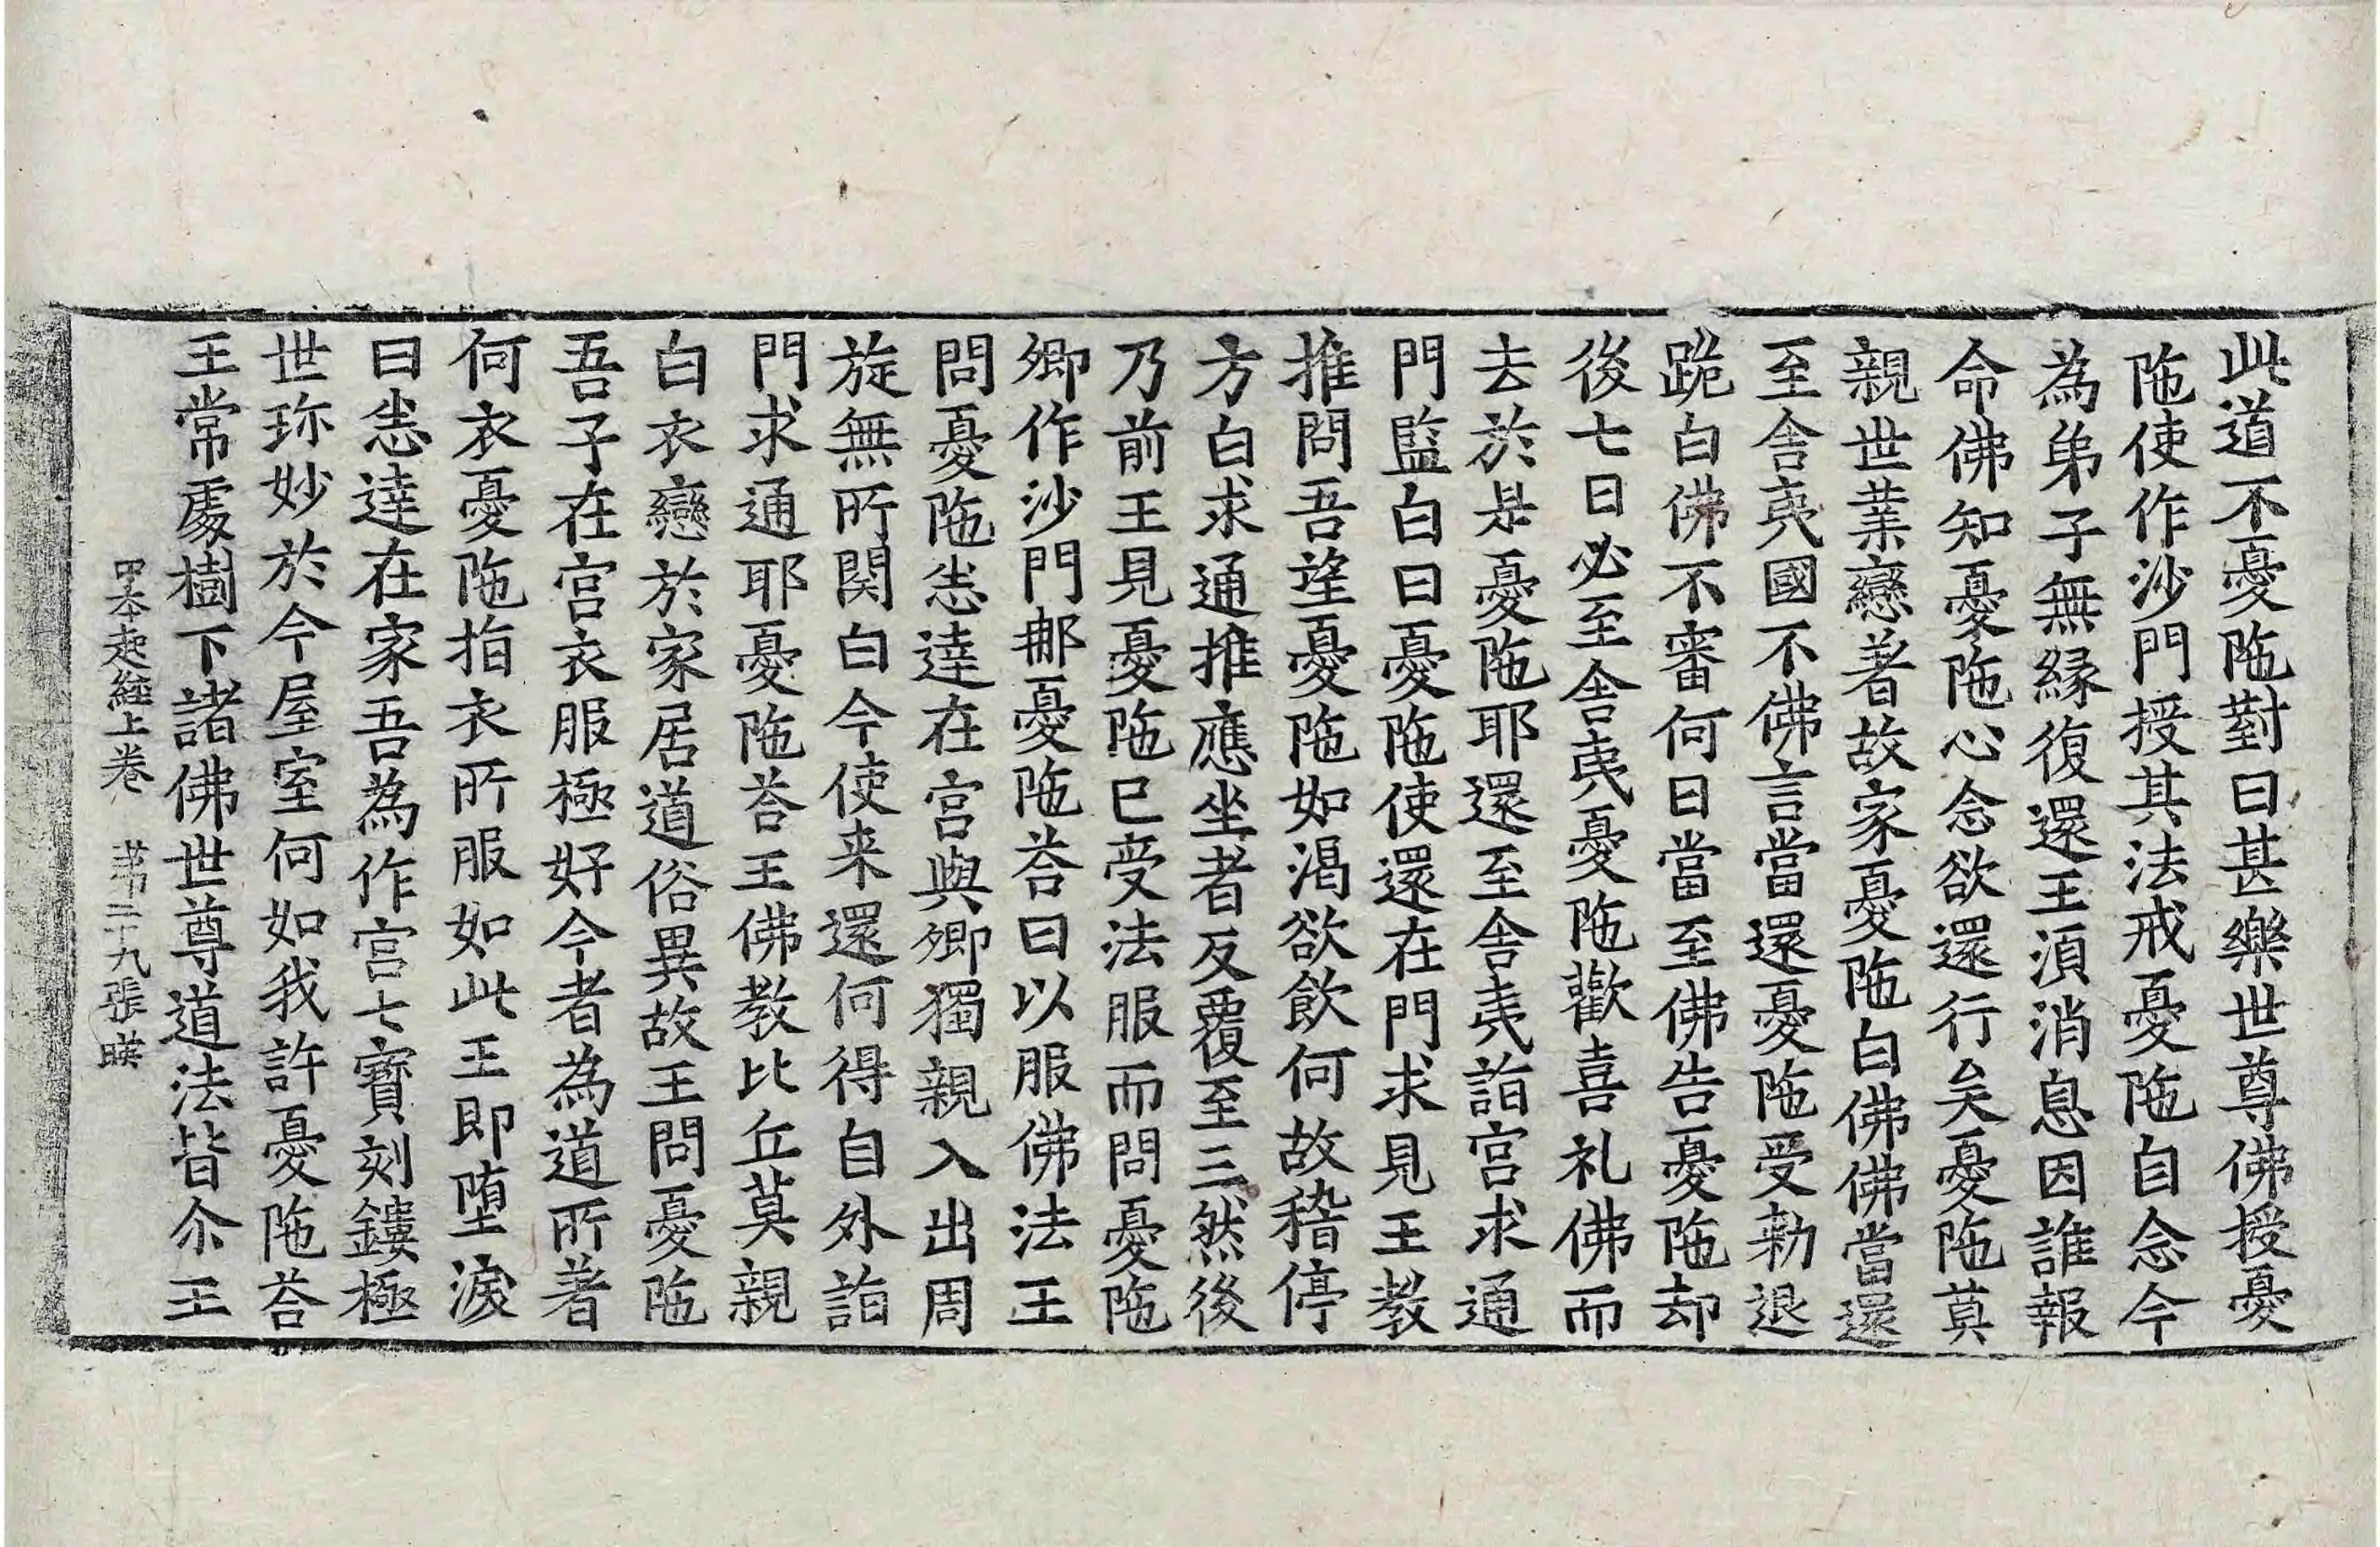 此道不憂陁對曰甚樂世尊佛授憂
陁使作沙門授其法戒憂陁自念今
為弟子無緣復還王湏消息因誰報
命佛知憂陁心念欲還行矣憂陁莫
親世業戀著故家憂陁白佛佛當還
至舍夷國不佛言當還憂陁受勑退
跪白佛不審何日當至佛告憂陁却
後七日必至舍夷憂陁歡喜礼佛而
去於是憂陁耶還至舍夷詣宮求通
門監白曰憂陁使還在門求見王教
推問吾望憂陁如渴欲飲何故稽停
方白求通推應坐者反覆至三然後
乃前王見憂陁已受法服而問憂陁
卿作沙門耶憂陁荅曰以服佛法王
問憂陁悉達在宮與卿獨親入出周
旋無所関白今使来還何得自外詣
門求通耶憂陁荅王佛教比丘莫親
白衣戀於家居道俗異故王問憂陁
吾子在宮衣服極好今者為道所著
何衣憂陁指衣所服如此王即墮淚
曰悉達在家吾為作宮七寶刻鏤極
世珎妙於今屋室何如我許憂陁荅
王常處樹下諸佛世尊道法皆尒王
本起經上卷 第二十九張